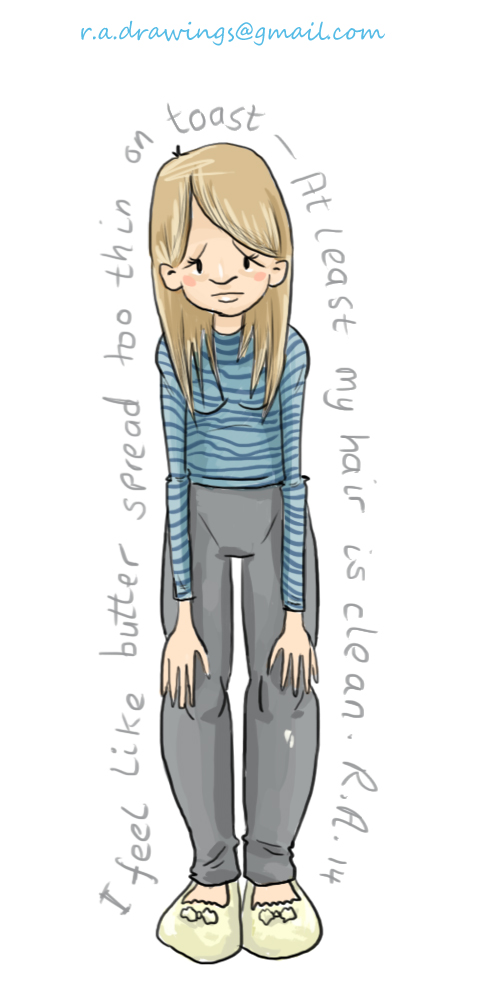 r.a.drawings@gmail.com
I feel like butter spread too thin on toast – At least my hair is clean. R.A. 14